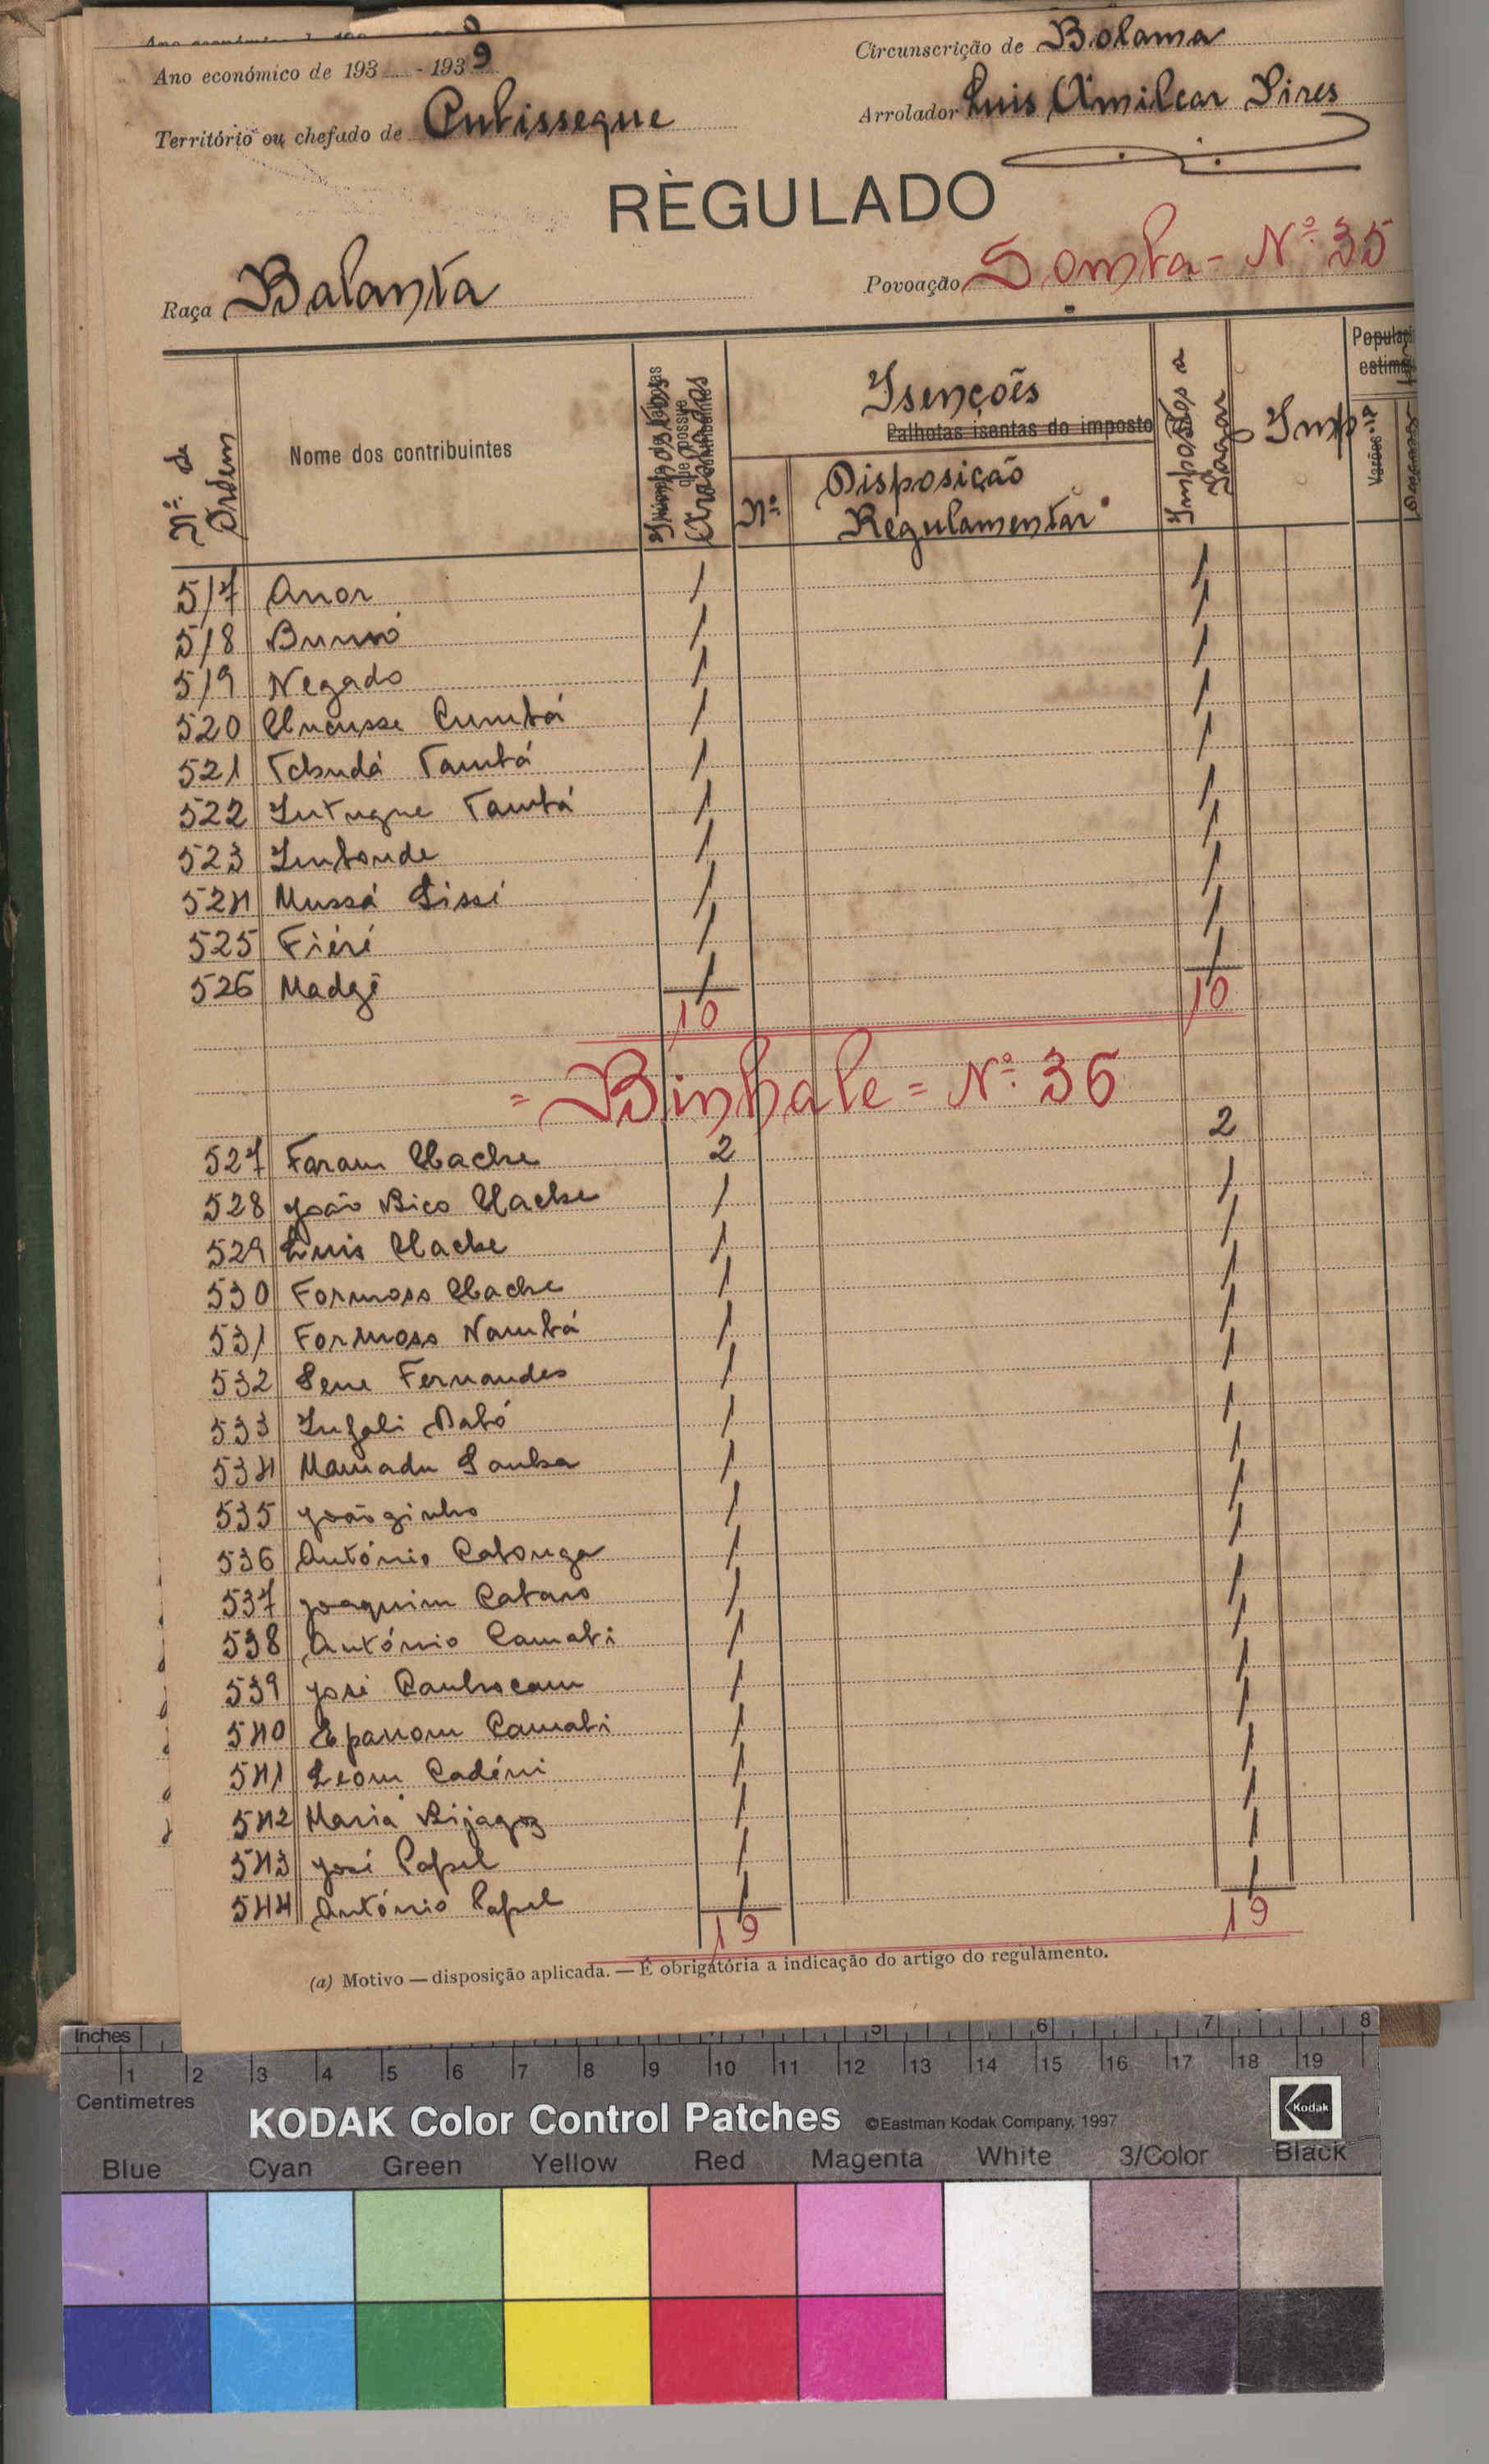 Ano económico de 193 - 1939
Circunscrição de Bolama
Território ou chefado de Cubisseque
Arrolador Luis Amilcar Pires
RÈGULADO
Raça Balanta
Povoação Somba - Nº. 35
Nº. de Ordem
Nome dos contribuintes
Impostos Arrolados
Isenções
Palhotas isentas do imposto
Nº.
Disposição Regulamentar
Impostos a Pagar
Imp
Varões
517 Anor 1 1
518 Bunió 1 1
519 Negado 1 1
520 Cumbá 1 1
521 Tchudá Tambá 1 1
522 Intugue Tambá 1 1
523 Imbonde 1 1
524 Mussá Sissé 1 1
525 Fiéré 1 1
526 Madgé 1 1
10 10
= Binhale = Nº. 36
527 Faram 2 2
528 João Bico 1 1
529 Luis 1 1
530 Formoso 1 1
531 Formoso Nambá 1 1
532 Sene Fernandes 1 1
533 Infali Dabó 1 1
534 Mamadu Samba 1 1
535 Joãoginho 1 1
536 António Catonga 1 1
537 Joaquim 1 1
538 António Camati 1 1
539 José 1 1
540 Camati 1 1
541 Leom Cadéni 1 1
542 Maria Bijagoz 1 1
543 José Papel 1 1
544 António Papel 1 1
19 19
(a) Motivo — disposição aplicada. — É obrigatória a indicação do artigo do regulamento.
Inches 5 6 7 8
1 2 3 4 5 6 7 8 9 10 11 12 13 14 15 16 17 18 19
Centimetres
KODAK Color Control Patches ©Eastman Kodak Company, 1997 Kodak
Blue Cyan Green Yellow Red Magenta White 3/Color Black